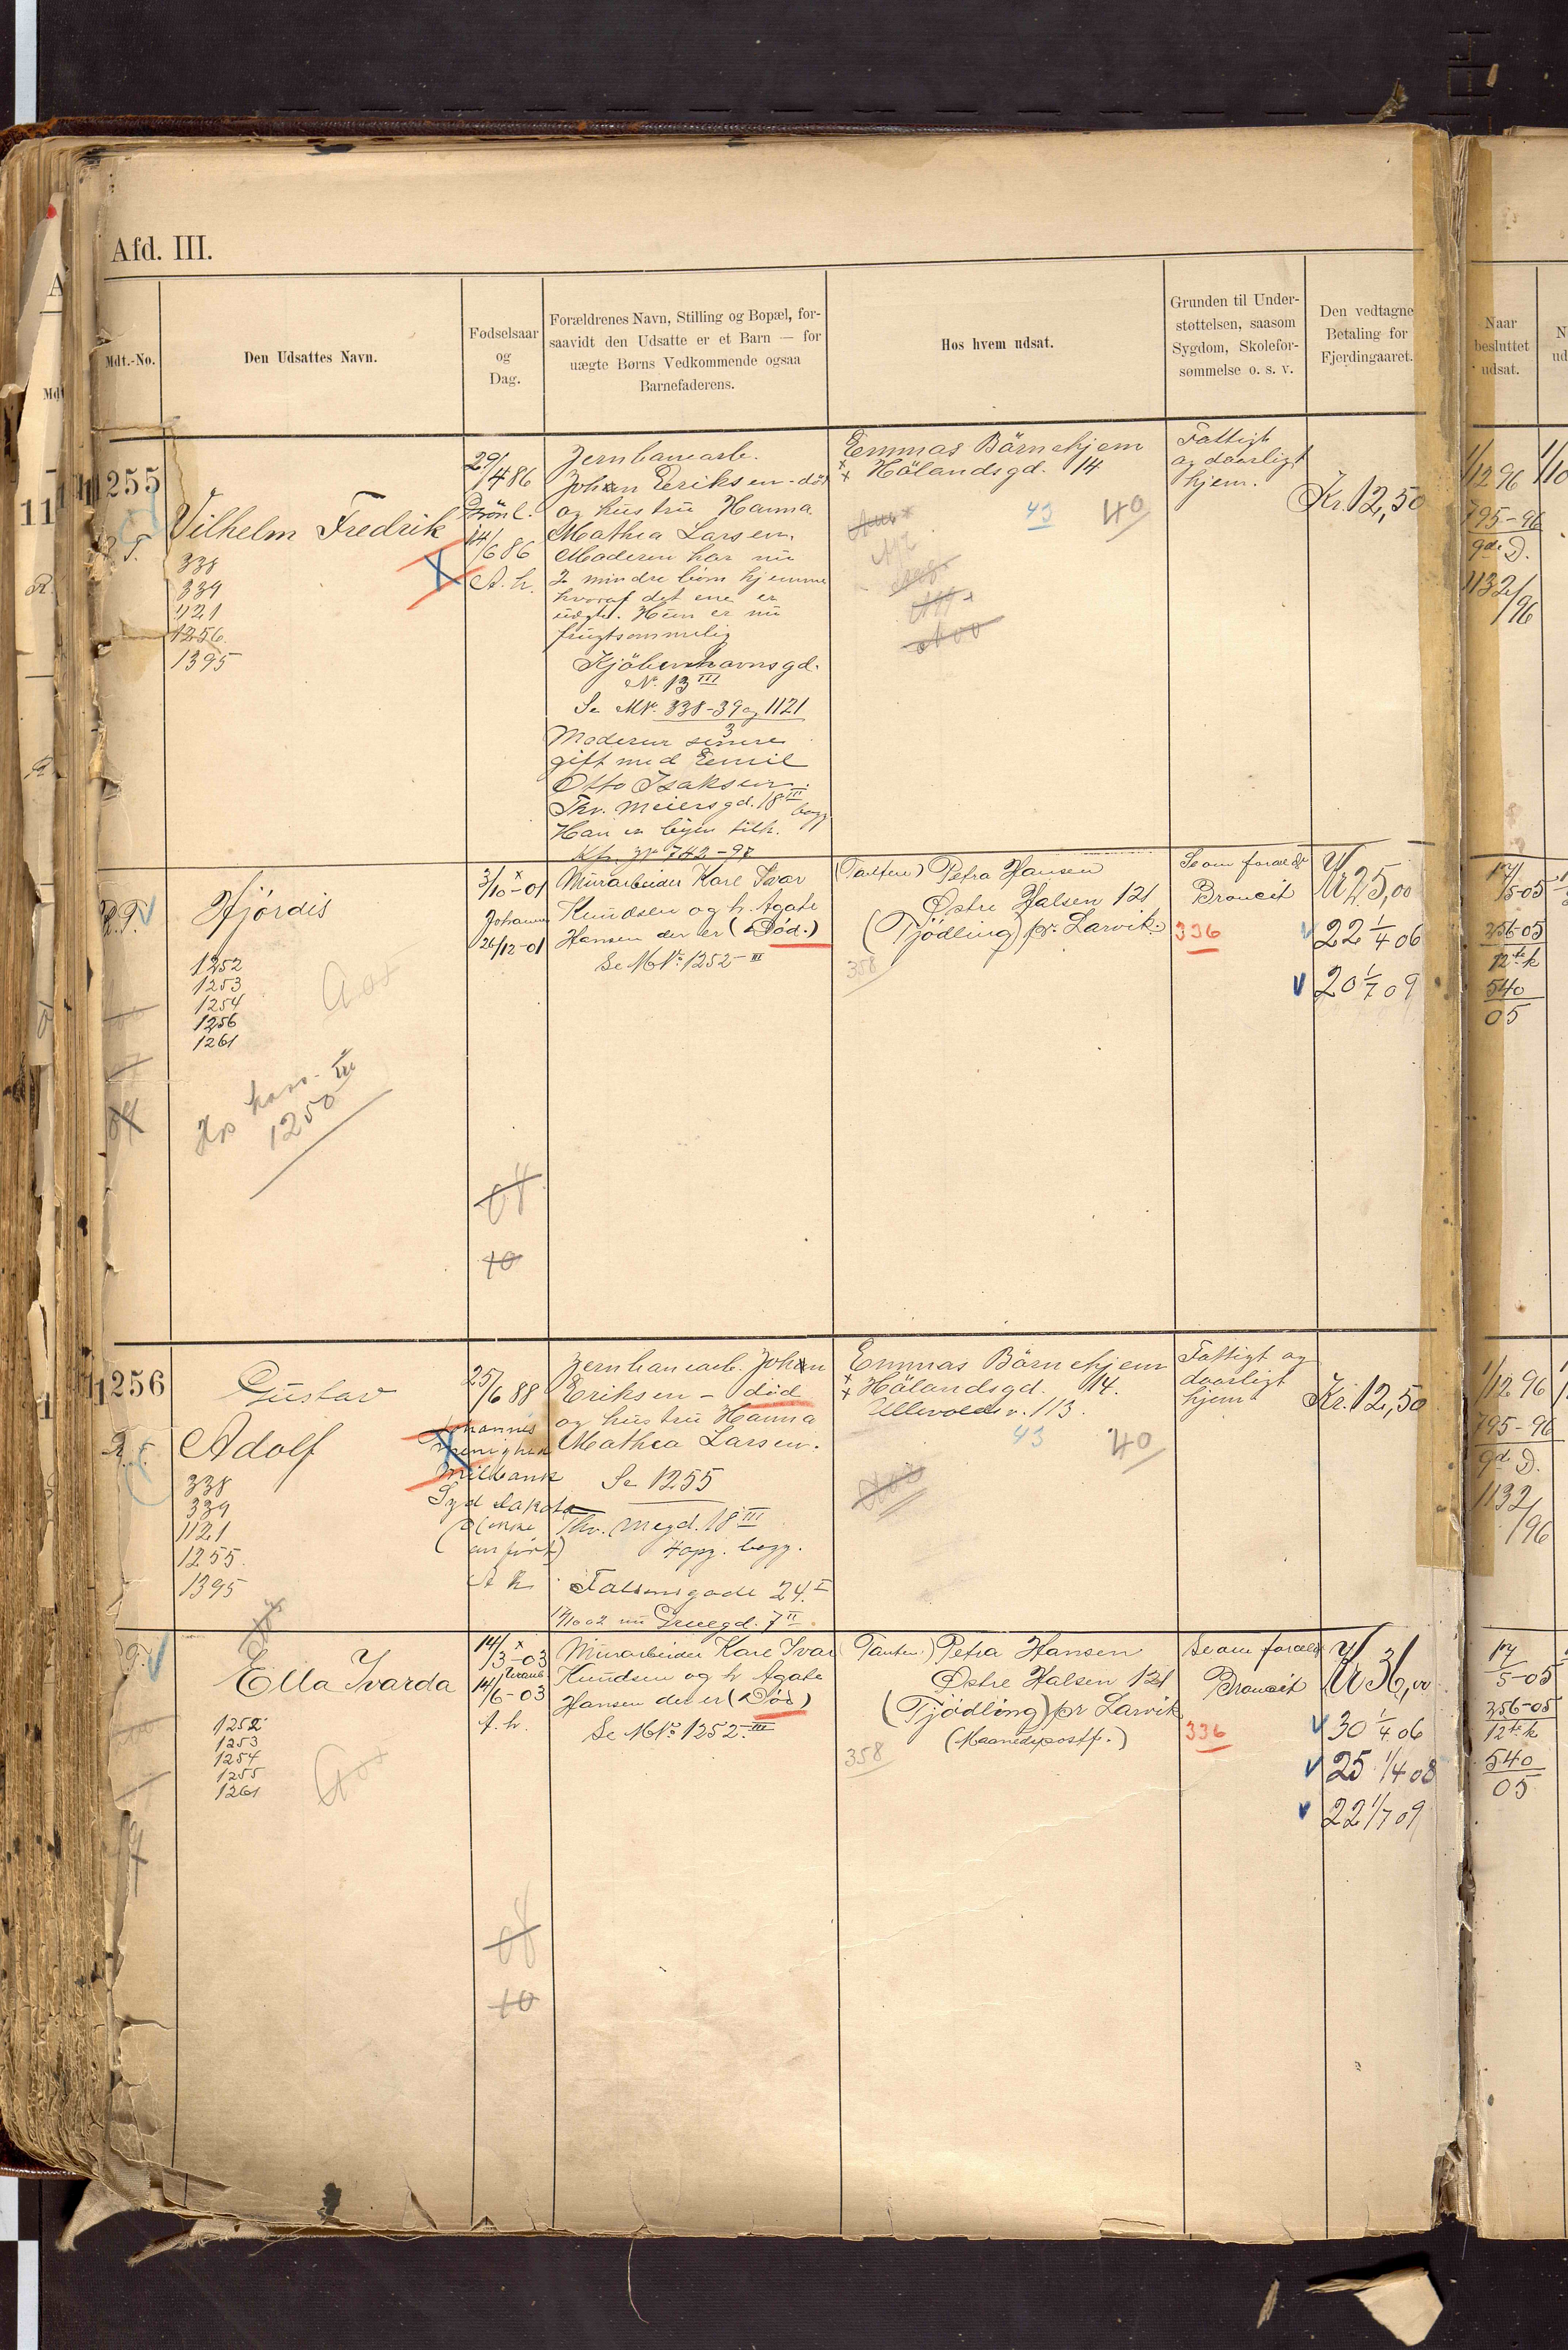 Afd. III.
Mdt.-No.
Den Udsattes Navn.
Fødselsaar
og
Dag.
Forældrenes Navn, Stilling og Bopæl, for-
saavidt den Udsatte er et Barn — for
uægte Børns Vedkommende ogsaa
Barnefaderens.
Hos hvem udsat.
Grunden til Under-
støttelsen, saasom
Sygdom, Skolefor-
sømmelse o. s. v.
Den vedtagne
Betaling for
Fjerdingaaret.
Naar
besluttet
udsat.
1255
Vilhelm Fredrik
338
339
1121
1256
1395
29/4 86
Grönl.
14/6 86
A. h.
Jernbanearb.
Johan Eriksen - död
og hustru Hanna
Mathea Larsen.
Moderen har nu
2 mindre börn hjemme
hvoraf det ene er
uægte. Hun er nu
frugtsommelig
Kjöbenhavnsgd.
No. 13 III
Se MNo. 338-39 og 1121
Moderen senere
gift med Emil
Otto Isaksen.
Thv. Meiersgd. 18 III
bagg
Han er byen tilh.
Kfr. JNo 742-97
Emmas Börnehjem
Hölandsgd. 14
43 40
Fattigt
og daarligt
hjem.
Kr. 12,50
1/12 96
795-96
9de D.
1132/96
Hjördis
1252
1253
1254
1256
1261
1250 III
3/10-01
Johannes
26/12-01
Murarbeider Karl Ivar
Knudsen og h. Agate
Hansen der er (Död.)
Se MNo. 1252 III
(Tanten) Petra Hansen
Østre Halsen 121
(Tjödling) pr. Larvik.
358
Se om foræld
336
Kr 25,00
22 1/4 06
20 1/7 09
17/5-05
256-05
12te k
540
05
08
10
1256
Gustav
Adolf
338
339
1121
1255.
1395
25/6 88
Johannes
menighed
Milbank
Syd Dakota
A h
Jernbanearb. Johan
Eriksen - död
og hustru Hanna
Mathea Larsen.
Se 1255
Thv. Megd. 18 III
4 opg. bagg.
Falsensgade 24 I
17/10 02 nu Gruegd. 7 II
Emmas Börnehjem
Hölandsgd. 14.
Ullevoldsv. 113.
43 40
Fattigt og
daarligt
hjem
Kr. 12,50
1/12 96
795-96
9de D.
1132/96
Ella Ivarda
1252
1253
1254
1255
1261
14/3-03
14/6-03
A. h.
Murarbeider Karl Ivar
Knudsen og h Agate
Hansen der er (Död)
Se MNo. 1252 III
(Tanten) Petra Hansen
Østre Halsen 121
(Tjödling) pr Larvik
(Maanedspostf.)
358
Se om foræld
336
Kr 36,00
30 1/4 06
25 1/4 08
22 1/7 09
17/5-05
256-05
12te k
540
05
08
10